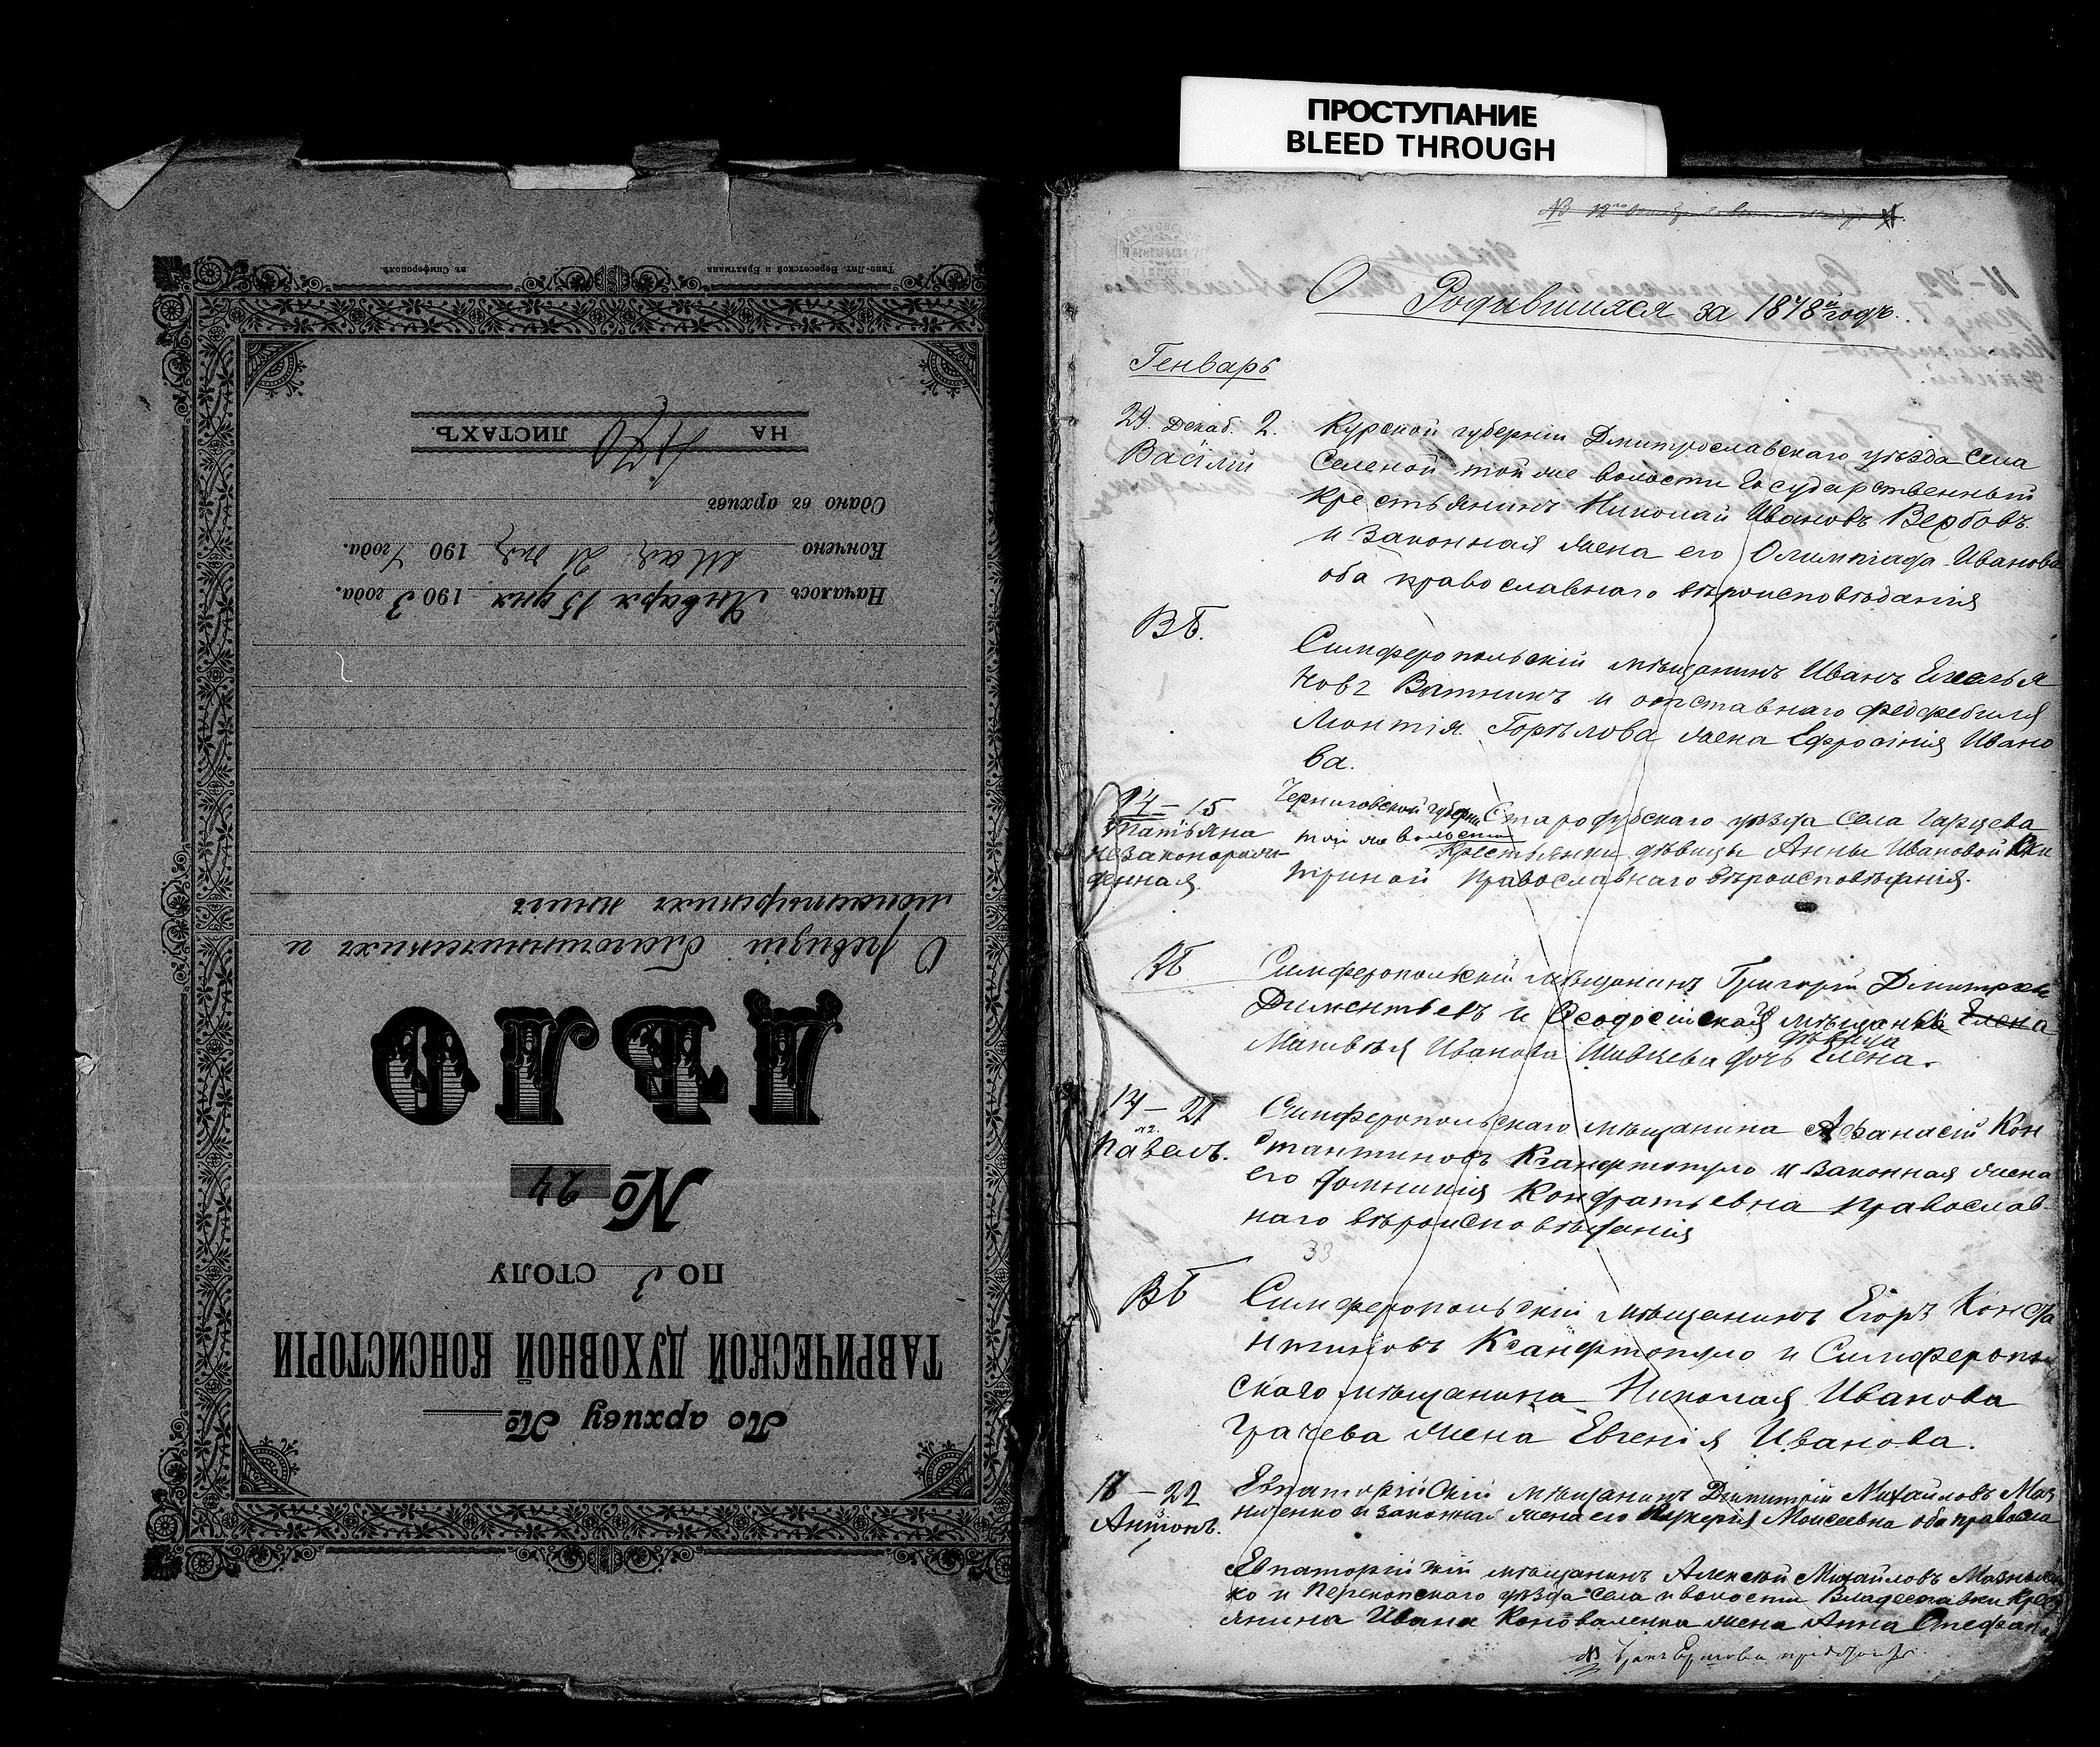 ПРОСТУПАНИЕ
BLEED THROUGH
По архиву №
ТАВРИЧЕСКОЙ ДУХОВНОЙ КОНСИСТОРІИ
ПО 3 СТОЛУ
№ 24
ДѢЛО
О ревизіи благочинническихъ и
монастырскихъ книгъ
Началось Января 15 дня 1903 года.
Кончено мая 21 дня 1904 года.
Сдано въ архивъ
НА ЛИСТАХЪ.
Типо-Лит. Вересотской и Брахтмана въ Симферополѣ.
О Родившихся за 1878й годъ.
Генварь
29. Декаб. 2.
Васілій
Курской губерніи Дмитрославскаго уѣзда Села
Селеной той же волости Государственный
крестьянинъ Николай Ивановъ Вербовъ
и Законная жена его Олимпіада Иванова
оба православнаго вѣроисповѣданія
ВБ.
Симферопольскій мѣщанинъ Иванъ Емелья
новъ Ватникъ и отставнаго федфебиля
Монтія Горѣлова жена Ефросінія Ивано
ва.
14 - 15
Татьяна
незаконорож
денная
Черниговской губерни Стародубскаго уѣзда Села Гарцева
той же волости
Крестьянки дѣвицы Анны Ивановой
Православнаго вѣроисповѣданія.
ВБ
Симферопольскій мѣщанинъ Григорій
Дементьевъ и Ѳеодосійской Елена
Матвѣя Иванова Шевцева дочь дѣвица Елена.
17 - 21
Павелъ.
Симферопольскаго мѣщанина Аѳанасій Кон
стантиновъ Ксанфтопуло и Законная жена
его Домникія Кондратьевна Православ
наго вѣроисповѣданія
33
ВБ
Симферопольскій мѣщанинъ Егоръ Конста
нтиновъ Ксанфтопуло и Симферопол
скаго мѣщанина Николая Иванова
Грачева жена Евгенія Иванова.
18 - 22
Антонъ.
Евпаторійскій мѣщанинъ Димитрій Михайловъ Маз
ниченко и законная жена его Моисеевна оба
Евпаторійскій мѣщанинъ Алексѣй Михайловъ
ко и Перекопскаго уѣзда Села и волости Владиславки Крест
янина Ивана Коноваленка жена Анна Стефан